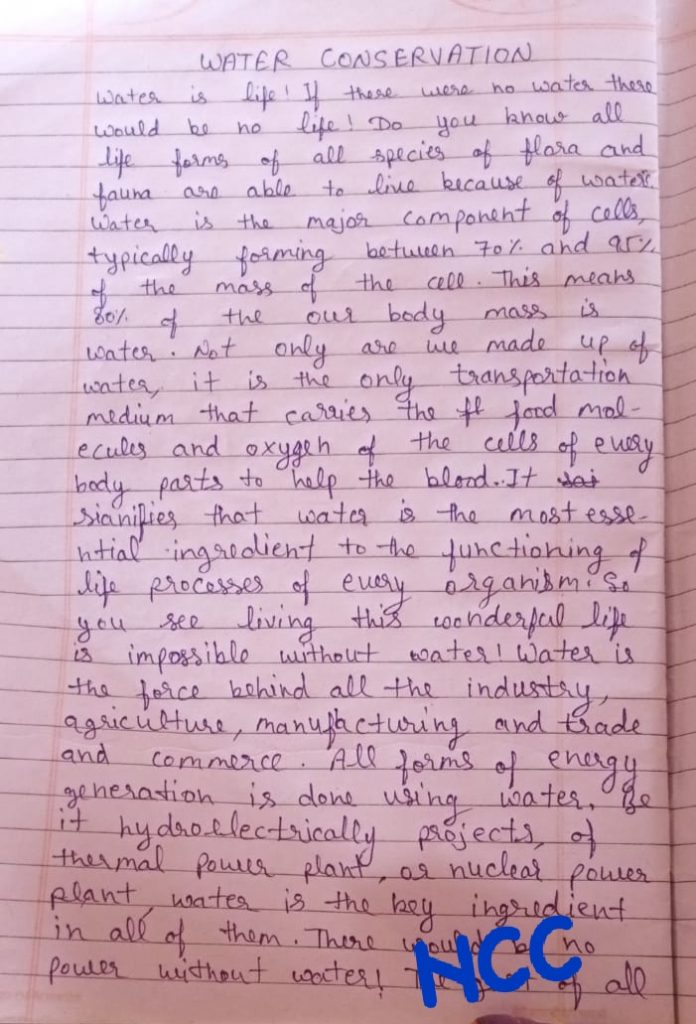 WATER CONSERVATION
Water is life! If there were no water there
would be no life! Do you know all
life forms of all species of flora and
fauna are able to live because of water.
Water is the major component of cells,
typically forming between 70% and 95%
of the mass of the cell. This means
80% of the our body mass is
water. Not only are we made up of
water, it is the only transportation
medium that carries the food mol-
ecules and oxygen of the cells of every
body parts to help the blood. It
sianifies that water is the most esse-
ntial ingredient to the functioning of
life processes of every organism. So
you see living this wonderful life
is impossible without water! Water is
the force behind all the industry,
agriculture, manufacturing and trade
and commerce. All forms of energy
generation is done using water. Be
it hydroelectrically projects, of
thermal power plant, or nuclear power
plant, water is the key ingredient
in all of them. There would be no
power without water! of all
NCC